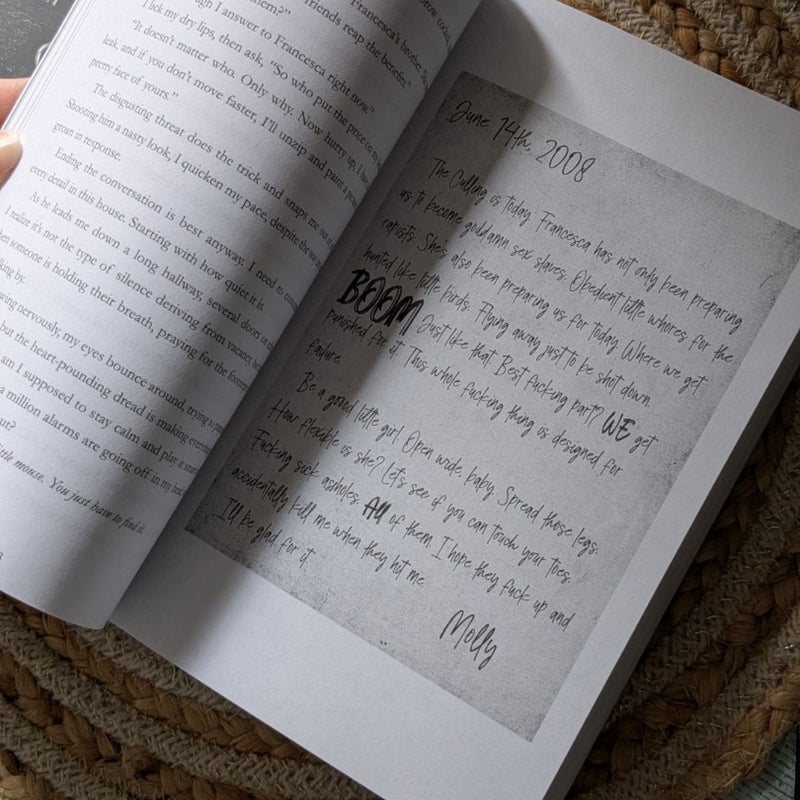 them?"
gh I answer to Francesca right now."
I lick my dry lips, then ask, "So who put the price on my
"It doesn't matter who. Only why. Now hurry up, I have
leak, and if you don't move faster, I'll unzip and paint a
pretty face of yours."
The disgusting threat does the trick and snaps me out
Shooting him a nasty look, I quicken my pace, despite the
groan in response.
Ending the conversation is best anyway. I need to
every detail in this house. Starting with how quiet it is.
As he leads me down a long hallway, several doors on
I realize it's not the type of silence deriving from vacancy
en someone is holding their breath, praying for the
king by.
wing nervously, my eyes bounce around, trying to
but the heart-pounding dread is making everything
am I supposed to stay calm and play it
a million alarms are going off in my head
ut?
ttle mouse. You just have to find it.
Francesca's brother.
friends reap the benefits."
June 14th, 2008
The Culling is today. Francesca has not only been preparing
us to become goddamn sex slaves. Obedient little whores for the
rapists. She's also been preparing us for today. Where we get
hunted like little birds. Flying away just to be shot down.
BOOM Just like that. Best fucking part? WE get
punished for it. This whole fucking thing is designed for
failure.
Be a good little girl. Open wide, baby. Spread those legs.
How flexible is she? Let's see if you can touch your toes.
Fucking sick assholes. All of them. I hope they fuck up and
accidentally kill me when they hit me.
I'll be glad for it.
Molly